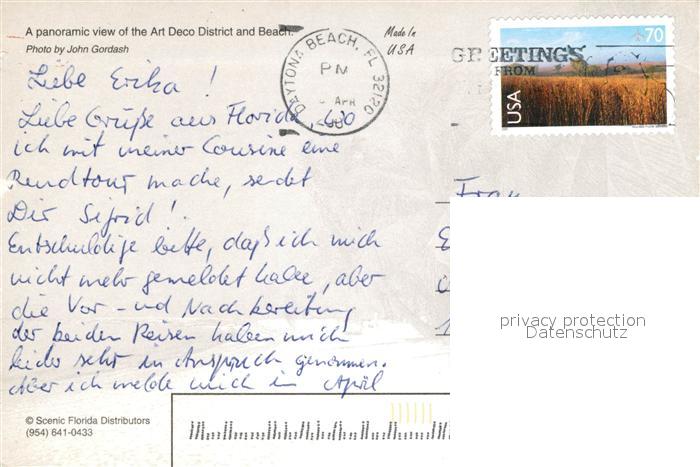 A panoramic view of the Art Deco District and Beach.
Photo by John Gordash
Made In
USA
DAYTONA BEACH, FL 32120
PM
APR
GREETINGS
FROM
70
USA
Liebe Erika !
Liebe Grüße aus Florida, wo
ich mit meiner Cousine eine
Rundtour mache, sendet
Dir Sigrid !
Entschuldige bitte, daß ich mich
nicht mehr gemeldet habe, aber
die Vor- und Nachbereitung
der beiden Reisen haben mich
leider sehr in Anspruch genommen.
Aber ich melde mich in April
Frau
privacy protection
Datenschutz
© Scenic Florida Distributors
(954) 641-0433